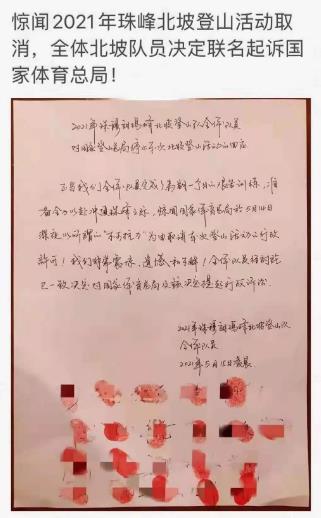 惊闻2021年珠峰北坡登山活动取
消，全体北坡队员决定联名起诉国
家体育总局！
2021年珠穆朗玛峰北坡登山队全体队员
对国家登山总局停止本次北坡登山活动的回应
正当我们全体队员完成了为期一个月的艰苦训练，准
备全力以赴冲顶珠峰之际，惊闻国家体育总局於5月14日
深夜以所谓的“不可抗力”为由取消本次登山活动的行政
许可！我们非常震惊、遗憾和不解！全体队员经讨论
已一致决定对国家体育总局及该决定提起行政诉讼。
2021年珠穆朗玛峰北坡登山队
全体队员
2021年5月15日凌晨